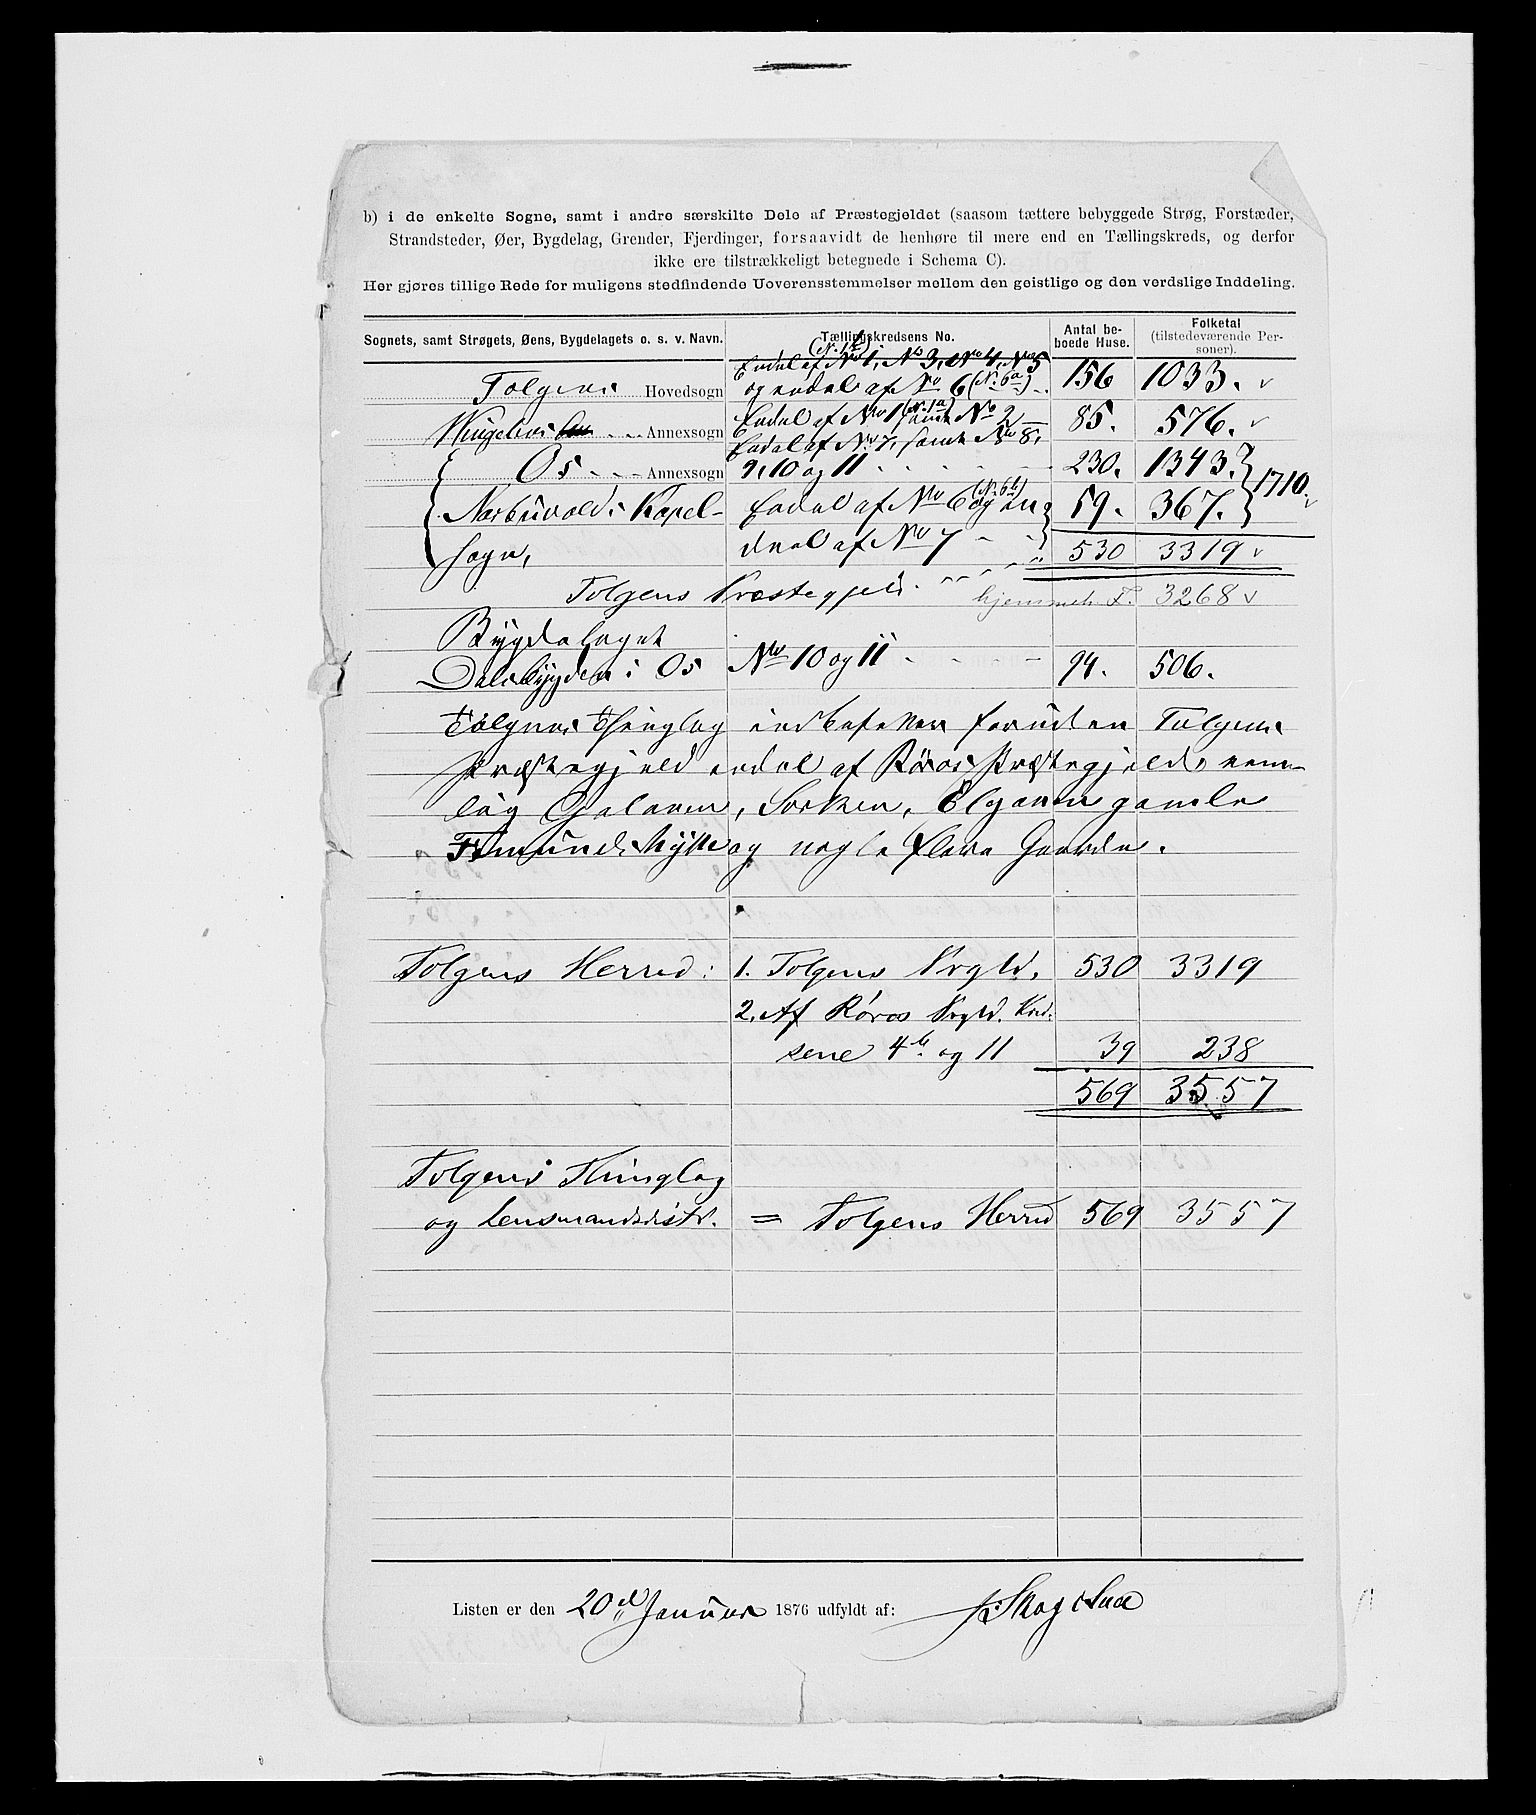 b) i de enkelte Sogne, samt i andre særskilte Dele af Præstegjeldet (saasom tættere bebyggede Strøg, Forstæder,
Strandsteder, Øer, Bygdelag, Grender, Fjerdinger, forsaavidt de henhøre til mere end en Tællingskreds, og derfor
ikke ere tilstrækkeligt betegnede i Schema C).
Her gjøres tillige Rede for muligens stedfindende Uoverensstemmelser mellem den geistlige og den verdslige Inddeling.
Sognets, samt Strøgets, Øens, Bygdelagets o. s. v. Navn. Tællingskredsens No. Antal beboede Huse. Folketal (tilstedeværende Personer).
(No. 1b)
Endel af No 1, No 3, No 4, No 5
Tolgens Hovedsogn og endel af No 6 (No. 6a) 156 1033.
Endel af No 1 (No. 1a) samt No 2
Annexsogn 85. 576.
Endel af No 7, samt No 8,
Os Annexsogn 9, 10 og 11 230. 1343. 1710.
Narbuvolds Kapel- Endel af No 6 (No. 6b) og en 59. 367.
sogn, deel af No 7 " 530 3319
Tolgens Præstegjeld hjemmeh. F. 3268
Bygdelaget
Dalsbygden i Os No 10 og 11 94. 506.
Tolgens Thinglag indbefatter foruden Tolgens
Præstegjeld endel af Röros Præstegjeld, nem-
lig Galaaen, Sørken, Elgaaen gamle
Fæmunds Hytte og nogle flere Gaarde.
Tolgens Herred: 1. Tolgens Prgld. 530 3319
2. Af Röros Prgld. Kred-
sene 4b og 11 39 238
569 3557
Tolgens Thinglag
og Lensmandsdistr. = Tolgens Herred 569 3557
Listen er den 20de Januar 1876 udfyldt af: